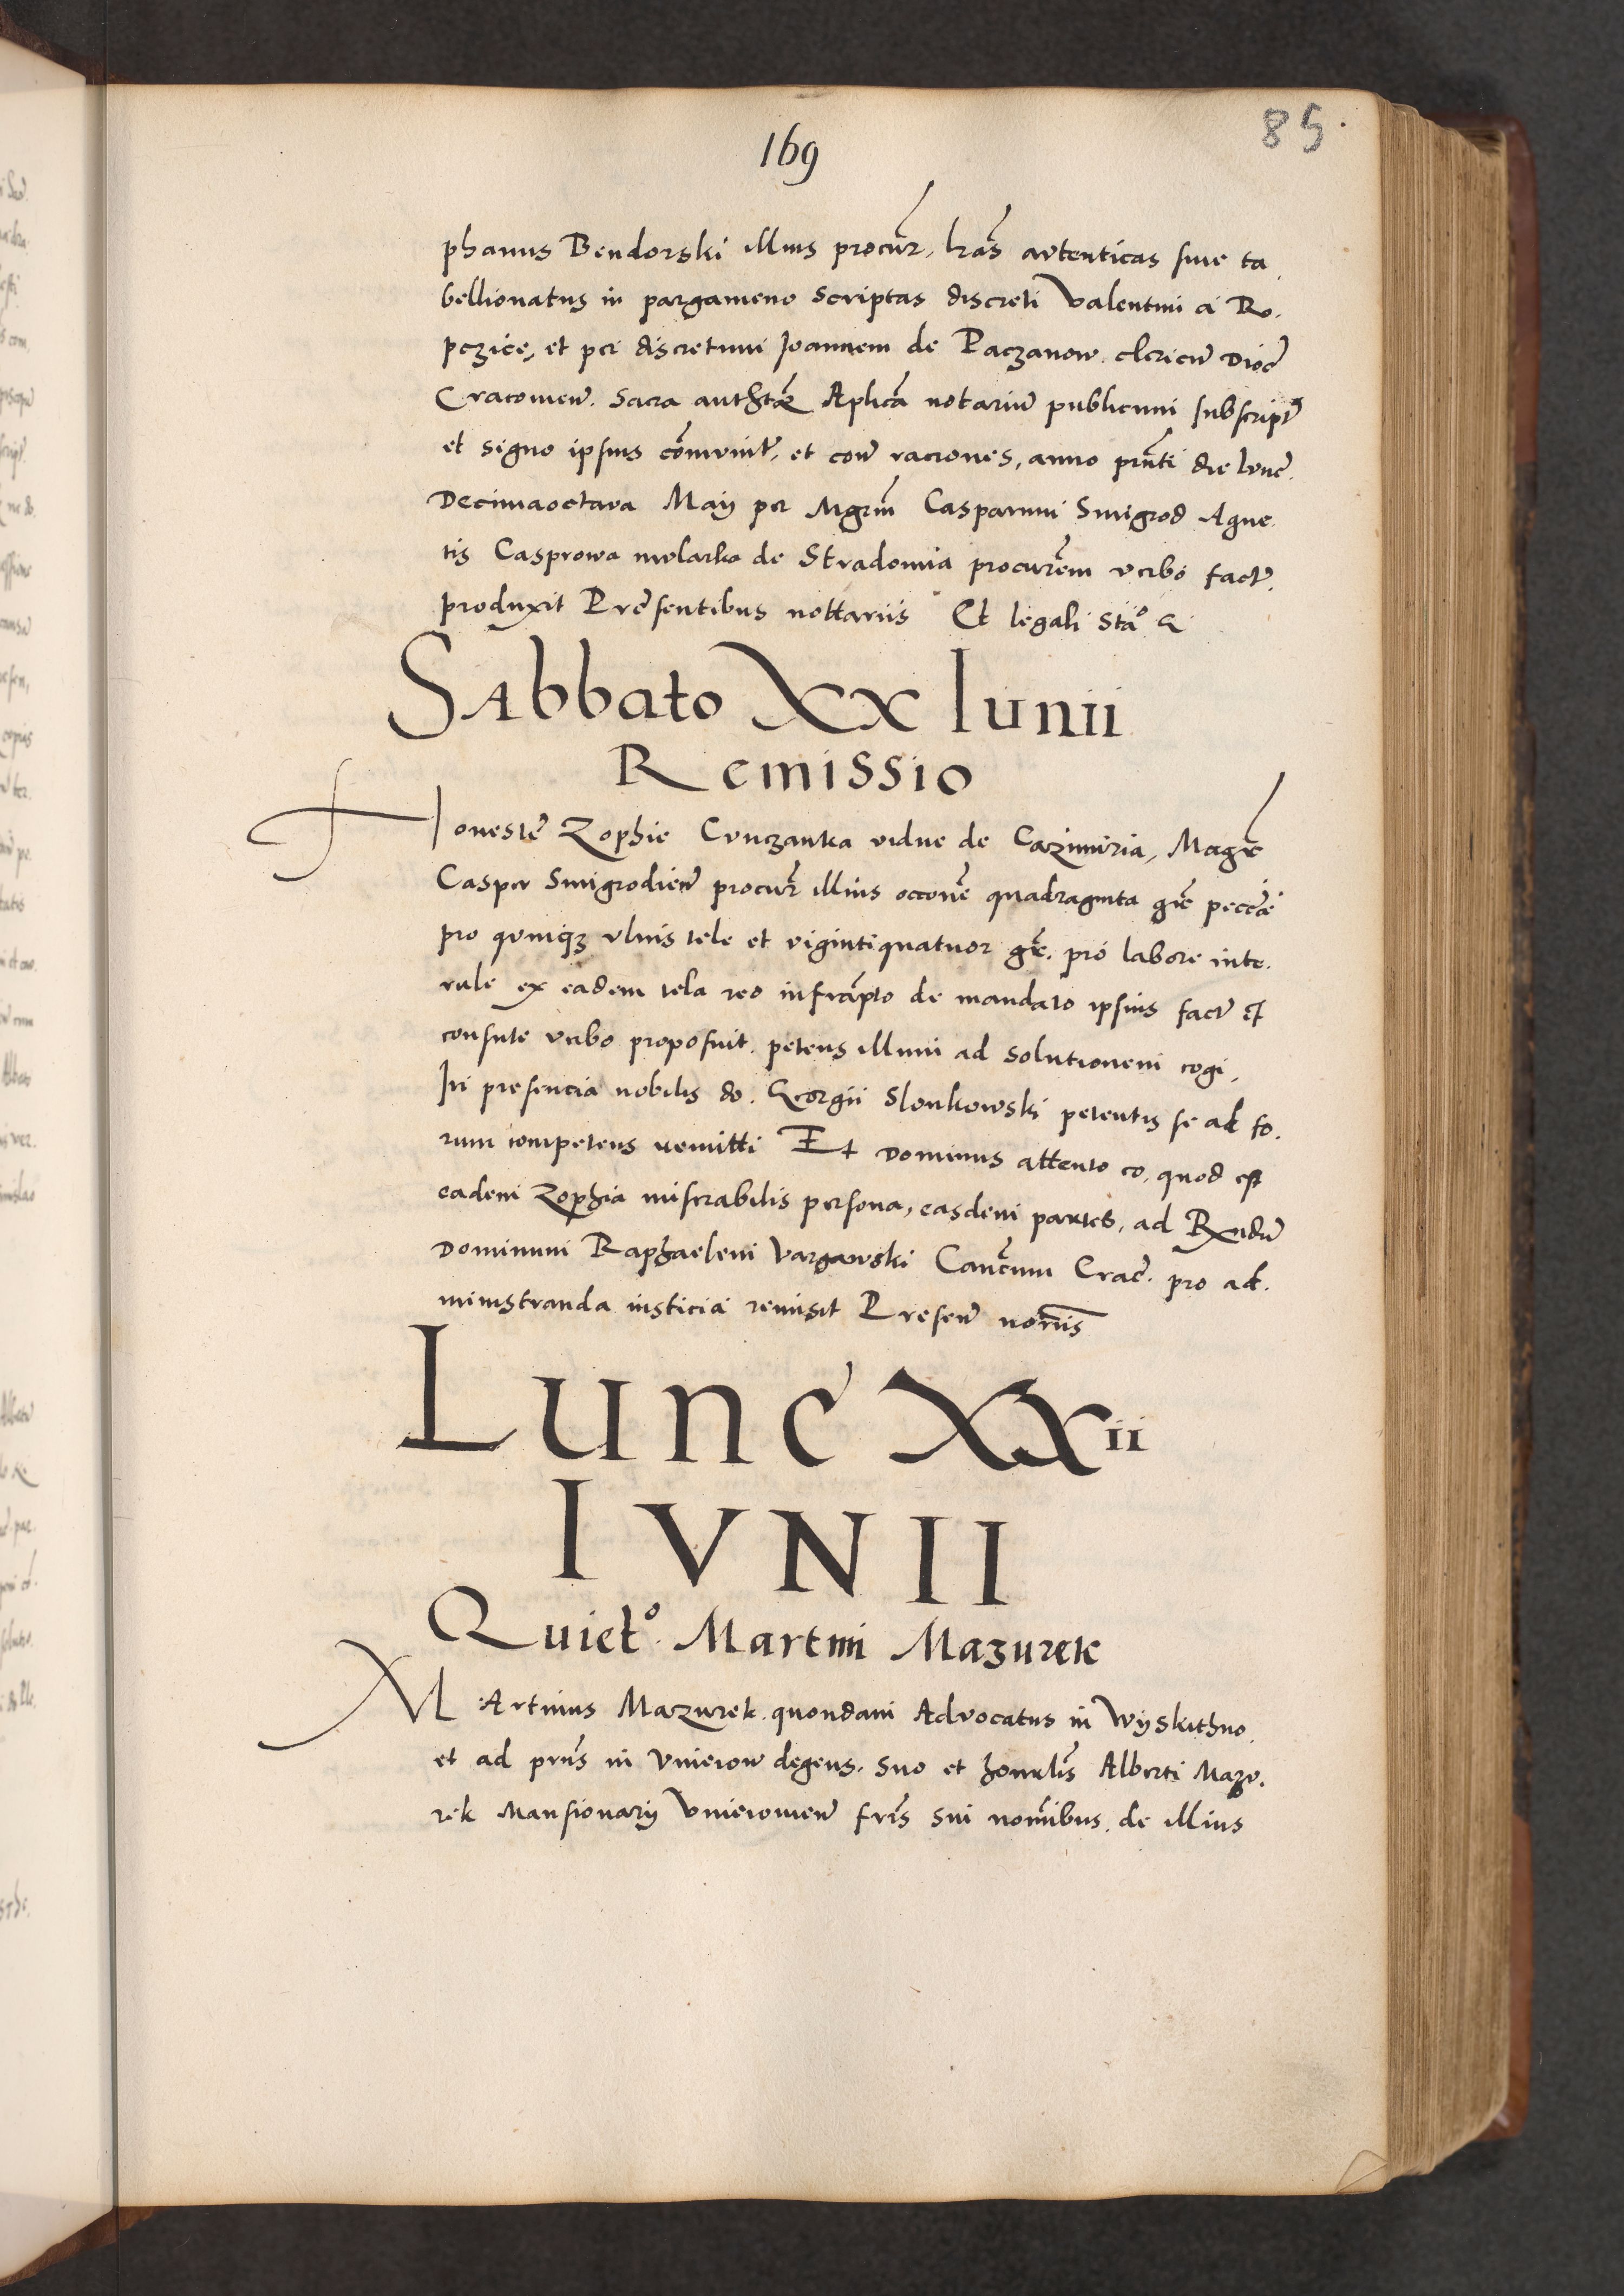 169
85.
phanus Bendorski illius procur̃, lrãs autenticas siue ta
bellionatus in pargameno scriptas discreti Valentini a Ro.
pczicze, et per discretum Joannem de Paczanow. clericũ Dioc̃
Cracovieñ. Sacra authtẽ Aplicã notariũ publicum subscript̃
et signo ipsius cõmunit̃, et coñ raciones, anno prñti die lunẽ.
Decimaoctava Maij per Mgrm̃ Casparum Smigrod Agne.
tis Casprowa molarka de Stradomia procurẽm verbo fact̃.
produxit Presentibus nottariis Et legali stã°
Sabbato XX Iunii
Remissio
Honestẽ Zophie Cunczantka vidue de Cazimiria, Magr̃
Casper Smigrodieñ procur̃ illius occoñe quadraginta gr̃
pro quinqz ulnis tele et vigintiquatuor gr̃. pro labore inte.
rule ex eadem tela reo infrasc̃pto de mandato ipsius fact̃ et
consute verbo proposuit. petens illum ad solutionem cogi,
In presencia nobilis do. Georgii Slonkowski petentis se ad fo.
rum competens remitti Et Dominus attento eo, quod est
eadem Zophia miserabilis persona, easdem partes, ad Rxndũ
Dominum Raphaelem Vargawski Canc̃um Crac̃. pro ad.
ministranda iusticia remisit Preseñ noriis̃
Lunẽ XXii
IVNII
Quiet°. Martini Mazurek
MArtinus Mazurek quondam Advocatus in Wyskithno.
et ad prñs in Vnieiow degens. suo et honrlis̃ Alberti Mazv.
rek Mansionarij Vnieiovieñ fr̃is sui nomĩbus. de illius